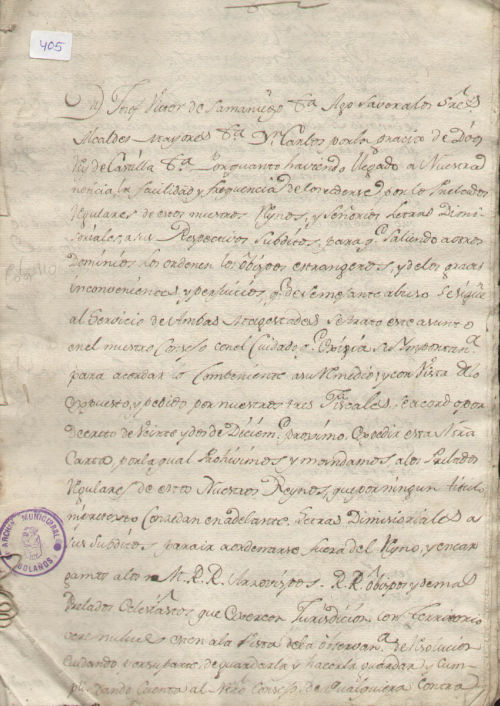 405
Dn Josef Victor de Samaniego &a Hago Saver a los Sres
Alcaldes Mayores &a Dn Carlos por la gracia de Dios
Rey de Castilla &a Por quanto haviendo llegado a Nuestra
noticia, la facilidad y frequencia de los Prelados
Regulares de estos nuestros Reynos, y Señorios Letras Dimi-
soriales, a sus Respectivos Subditos, para qe Saliendo a otros
Dominios los ordenen los Obispos estrangeros, y de los graves
inconvenientes, y perjuicios, qe de semejante abuso Se sigue
al Servicio de Ambas Magestades Se trato este asunto
en el nuestro Consejo con el Cuidado qe Exigia Su Importana
para acordar lo Combeniente a su Remedio; y con Vista de lo
expuesto, y pedido por nuestros tres Fiscales, Se acordo por
Decreto de Veinte y dos de Diciemre proximo Expedir esta Nra
Carta, por la qual Prohivimos y mandamos a los Prelados
Regulares de estos Nuestros Reynos, que por ningun titulo
ni pretexto Conzedan en adelante Letras Dimisoriales a
sus Subditos para ir a ordenarse fuera del Reyno, y encar
gamos a los M. R. R. Arzobispos R. R. Obispos y demas
Prelados Eclesiasticos que Exercen Jurisdicion con territorio
vere nullius esten a la Vista de la observana de Resolucion
Cuidando por su parte de guardarla y hacerla guardar y Cum-
plir dando Cuenta al Nro Consejo de qualquiera Contra
ARCHIVO MUNICIPAL
BOLAÑOS